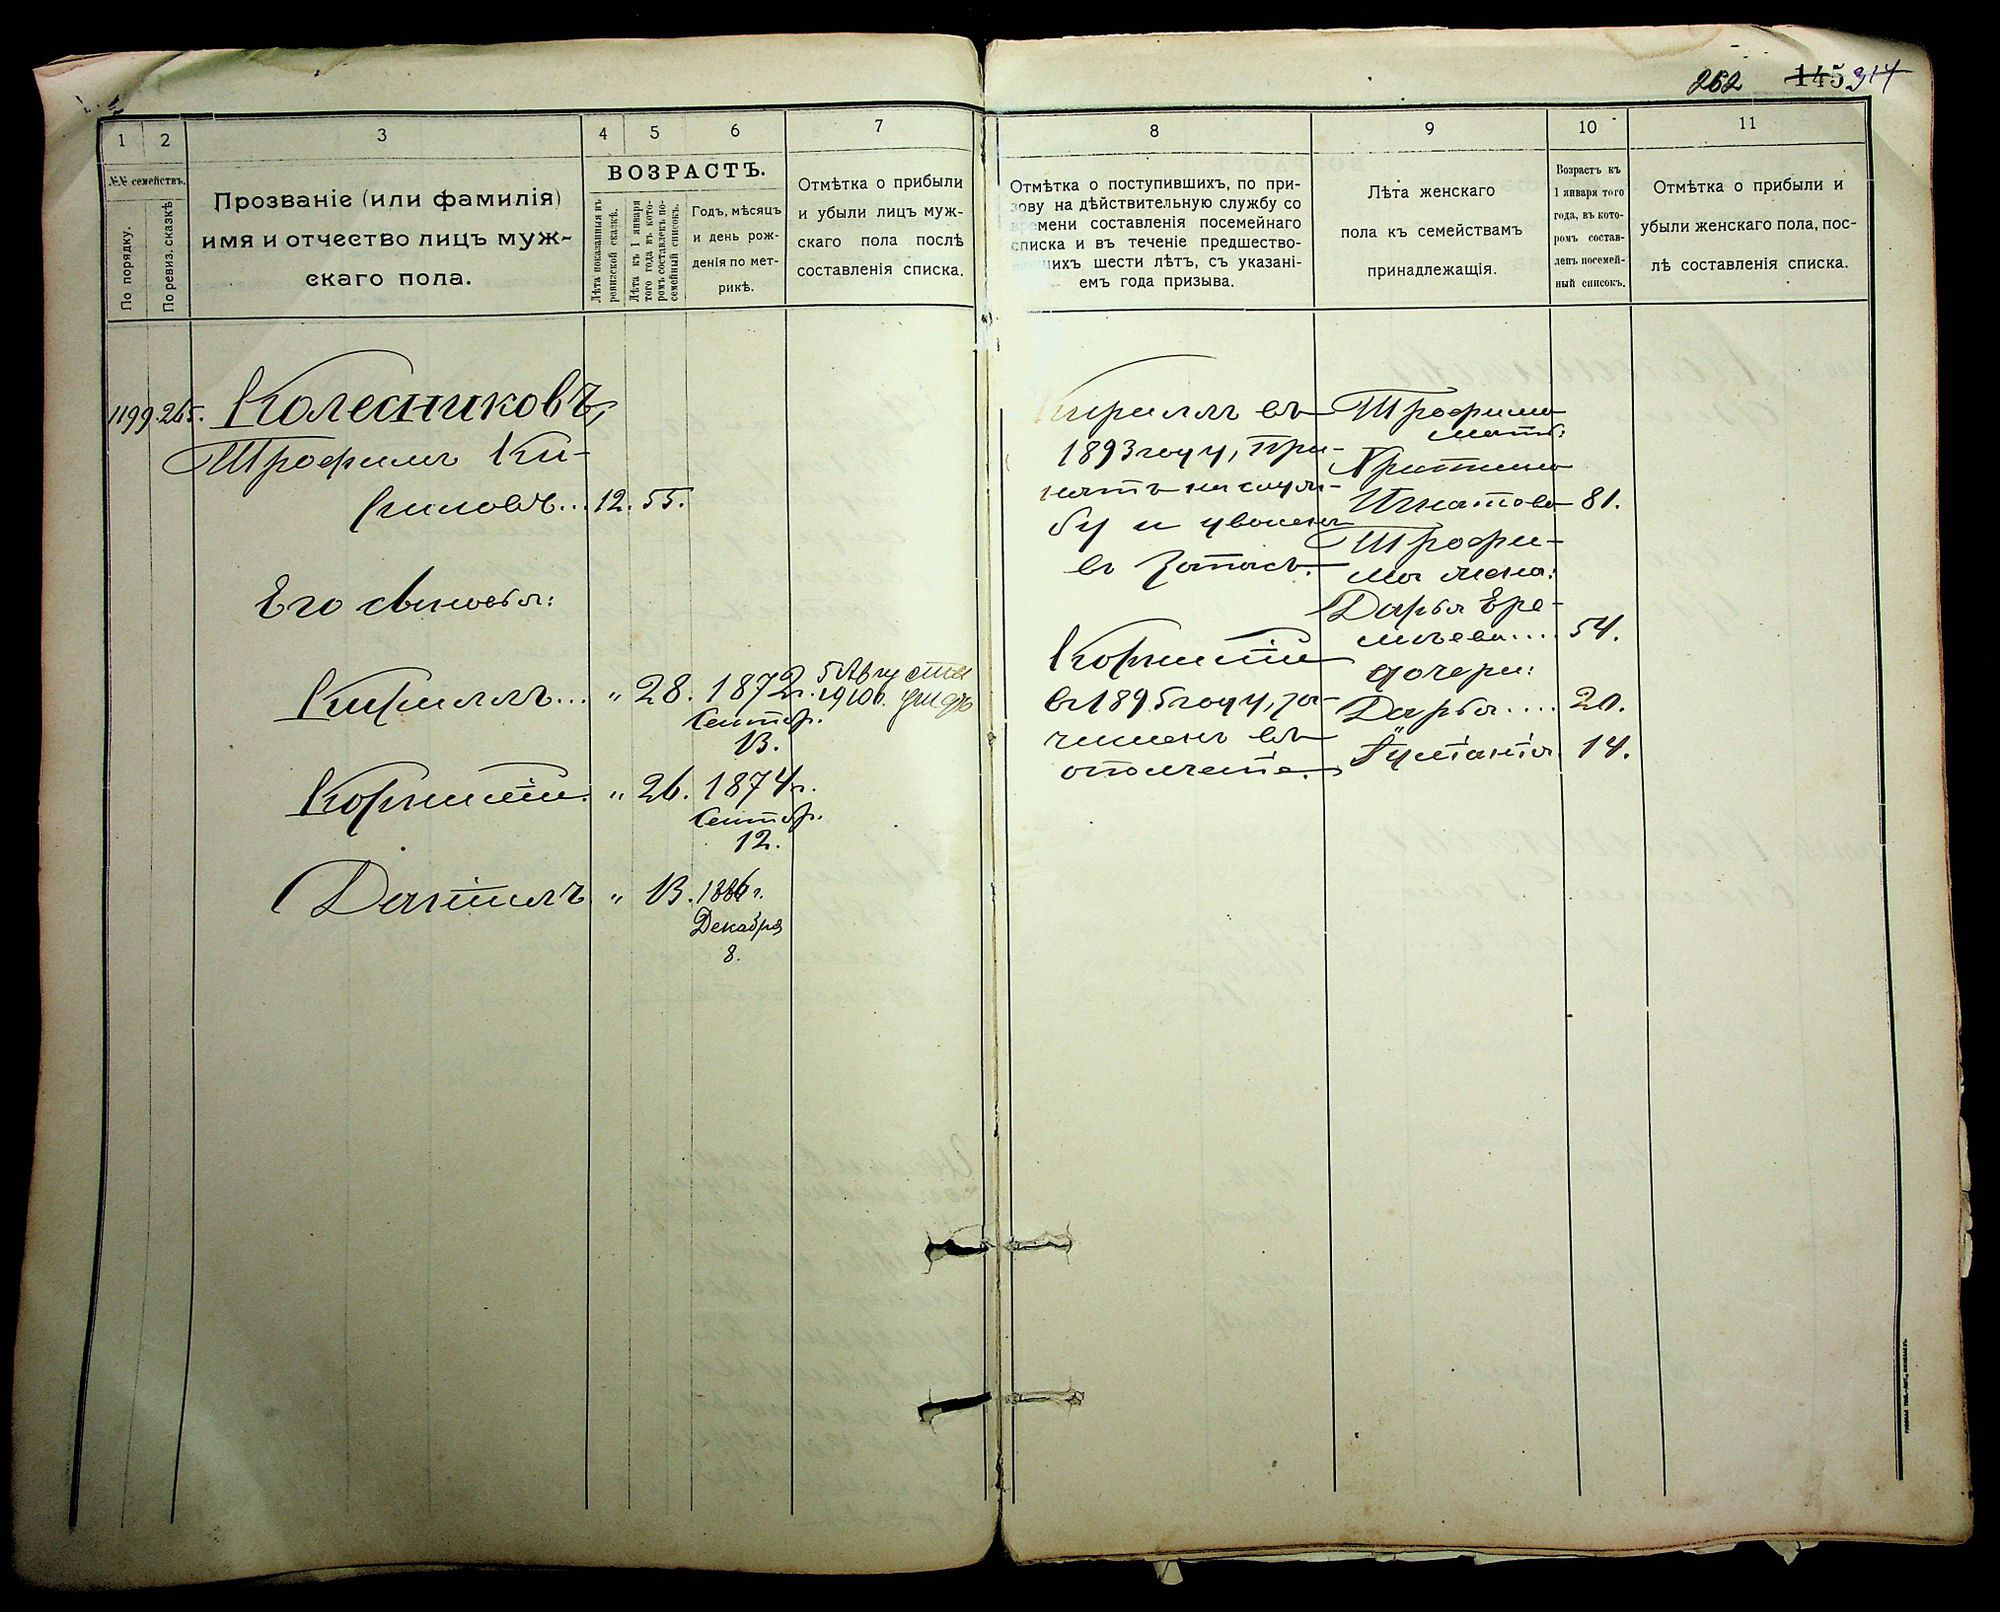 262 145 314
1 2 3 4 5 6 7
№№ семействъ.
По порядку.
По ревиз. сказкѣ
Прозваніе (или фамилія)
имя и отчество лицъ муж-
скаго пола.
ВОЗРАСТЪ.
Лѣта показанныя въ
ревизской сказкѣ.
Лѣта къ 1 января
того года въ кото-
ромъ составленъ по-
семейный списокъ.
Годъ, мѣсяцъ
и день рож-
денія по мет-
рикѣ.
Отмѣтка о прибыли
и убыли лицъ муж-
скаго пола послѣ
составленія списка.
1199. 265. Колесниковъ,
Трофимъ Ки-
риловъ... 12. 55.
Его сыновья:
Кириллъ... „ 28. 1872г.
Сентяр.
13.
5 Августа
1910г.
Корнилій. „ 26. 1874г.
Сентбр.
12.
Даніилъ „ 13. 1886г.
Декабря
8.
8 9 10 11
Отмѣтка о поступившихъ, по при-
зову на дѣйствительную службу со
времени составленія посемейнаго
списка и въ теченіе предшество-
вавшихъ шести лѣтъ, съ указані-
емъ года призыва.
Лѣта женскаго
пола къ семействамъ
принадлежащія.
Возрастъ къ
1 января того
года, въ кото-
ромъ состав-
ленъ посемей-
ный списокъ.
Отмѣтка о прибыли и
убыли женскаго пола, пос-
лѣ составленія списка.
Кириллъ въ
1893 году, при-
нятъ на служ-
бу и уволенъ
въ запасъ.
Корнилій
въ 1895 году, за-
численъ въ
ополченіе.
Трофима
мать:
Христина
Игнатова 81.
Трофи-
ма жена:
Дарья Ере-
мѣева.... 54.
дочери:
Дарья.... 20.
14.